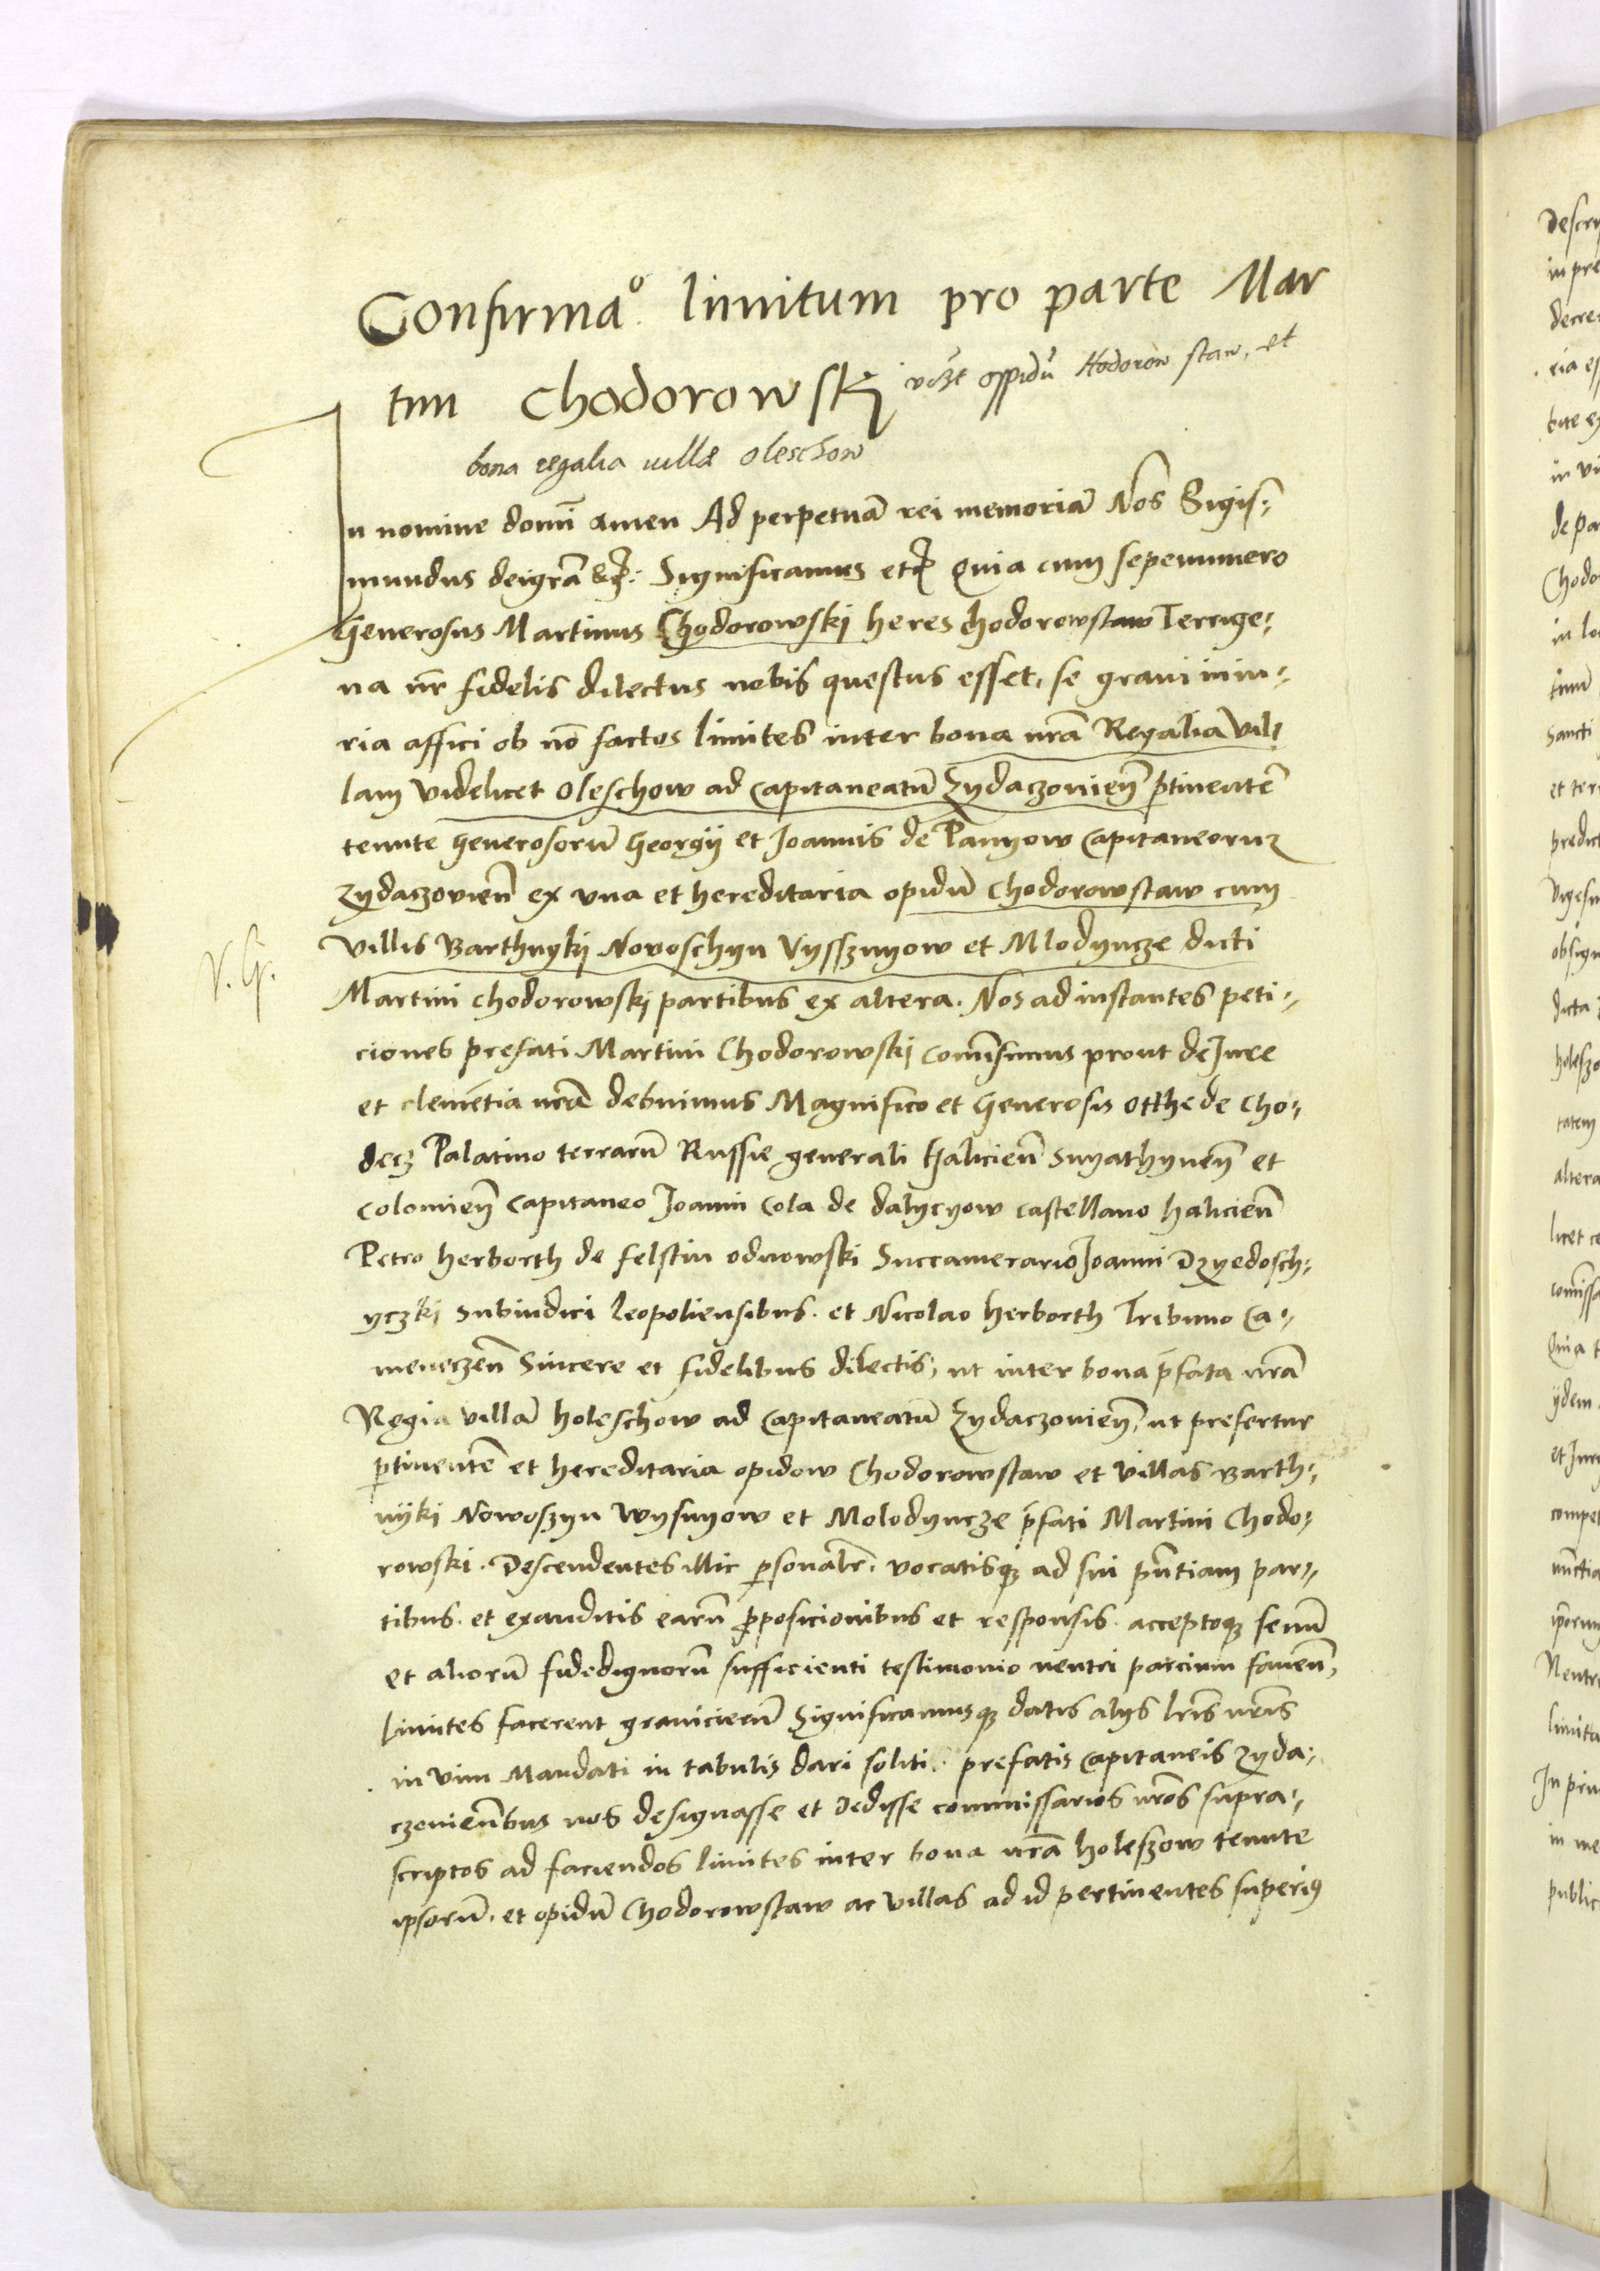 Confirmaᵒ. limitum pro parte Mar
tini Chodorowskj oppidū Hodorow staw, et
bona regalia villæ oleschow
In nomine domī amen Ad perpetuā rei memoriā Nos Sigis-
mundus deigrā &c: Significamus etc̄ Quia cum sepenumero
Generosus Martinus Chodorowskj heres chodorowstaw Terrige-
na nr̄ fidelis dilectus nobis questus esset, se graui iniu-
ria affici ob nō factos limites inter bona nrā Regalia vil-
lam videlicet oleschow ad Capitaneatū Zydaczouieñ ptinentē
tenute Generosorū Georgij et Joannis de Pannow Capitaneorum
Zydaczovieñ ex vna et hereditaria opidū chodorowstaw cum
villis Barthnykj Novoschyn Vysznyow et Mlodyncze dicti
V. G.
Martini chodorowskj partibus ex altera. Nos ad instantes peti-
ciones prefati Martini Chodorowskj comīsimus prout de Jure
et clemētia nrā debuimus Magnifico et Generosis Otthe de Cho-
decz Palatino terrarū Russie generali Halicieñ Snyathyneñ et
colomieñ Capitaneo Joanni Cola de dalyeyow castellano halicieñ
Petro herborth de felstin odnowski Succamerario Joanni Dzyedosch-
yczki subiudici leopoliensibus. et Nicolao herborth Tribuno Ca-
meneczeñ Sincere et fidelibus dilectis, ut inter bona p̄fata nrā
Regia villā holeschow ad Capitaneatū Zydaczouieñ, ut prefertur
ptinentē et hereditaria opidow Chodorowstaw et villas Barth-
nÿki Nowoszyn Wysnyow et Molodyncze p̄fati Martini Chodo-
rowski. Descendentes illic psonalr̄. vocatisqʒ ad sui pn̄tiam par-
tibus. et exauditis earū pposicionibus et responsis. acceptoqʒ senū
et aliorū fidedignorū sufficienti testimonio neutri parcium faueñ,
limites facerent granicierū Significamusqʒ datis alijs lrīs nrīs
in vim Mandati in tabulis dari soliti. prefatis Capitaneis Zyda-
czouieñbus nos designasse et dedisse commissarios nrōs supra-
scriptos ad faciendos limites inter bona nrā holeszow tenute
ipsorū. et opidū Chodorowstaw ac villas ad id pertinentes superiꝰ